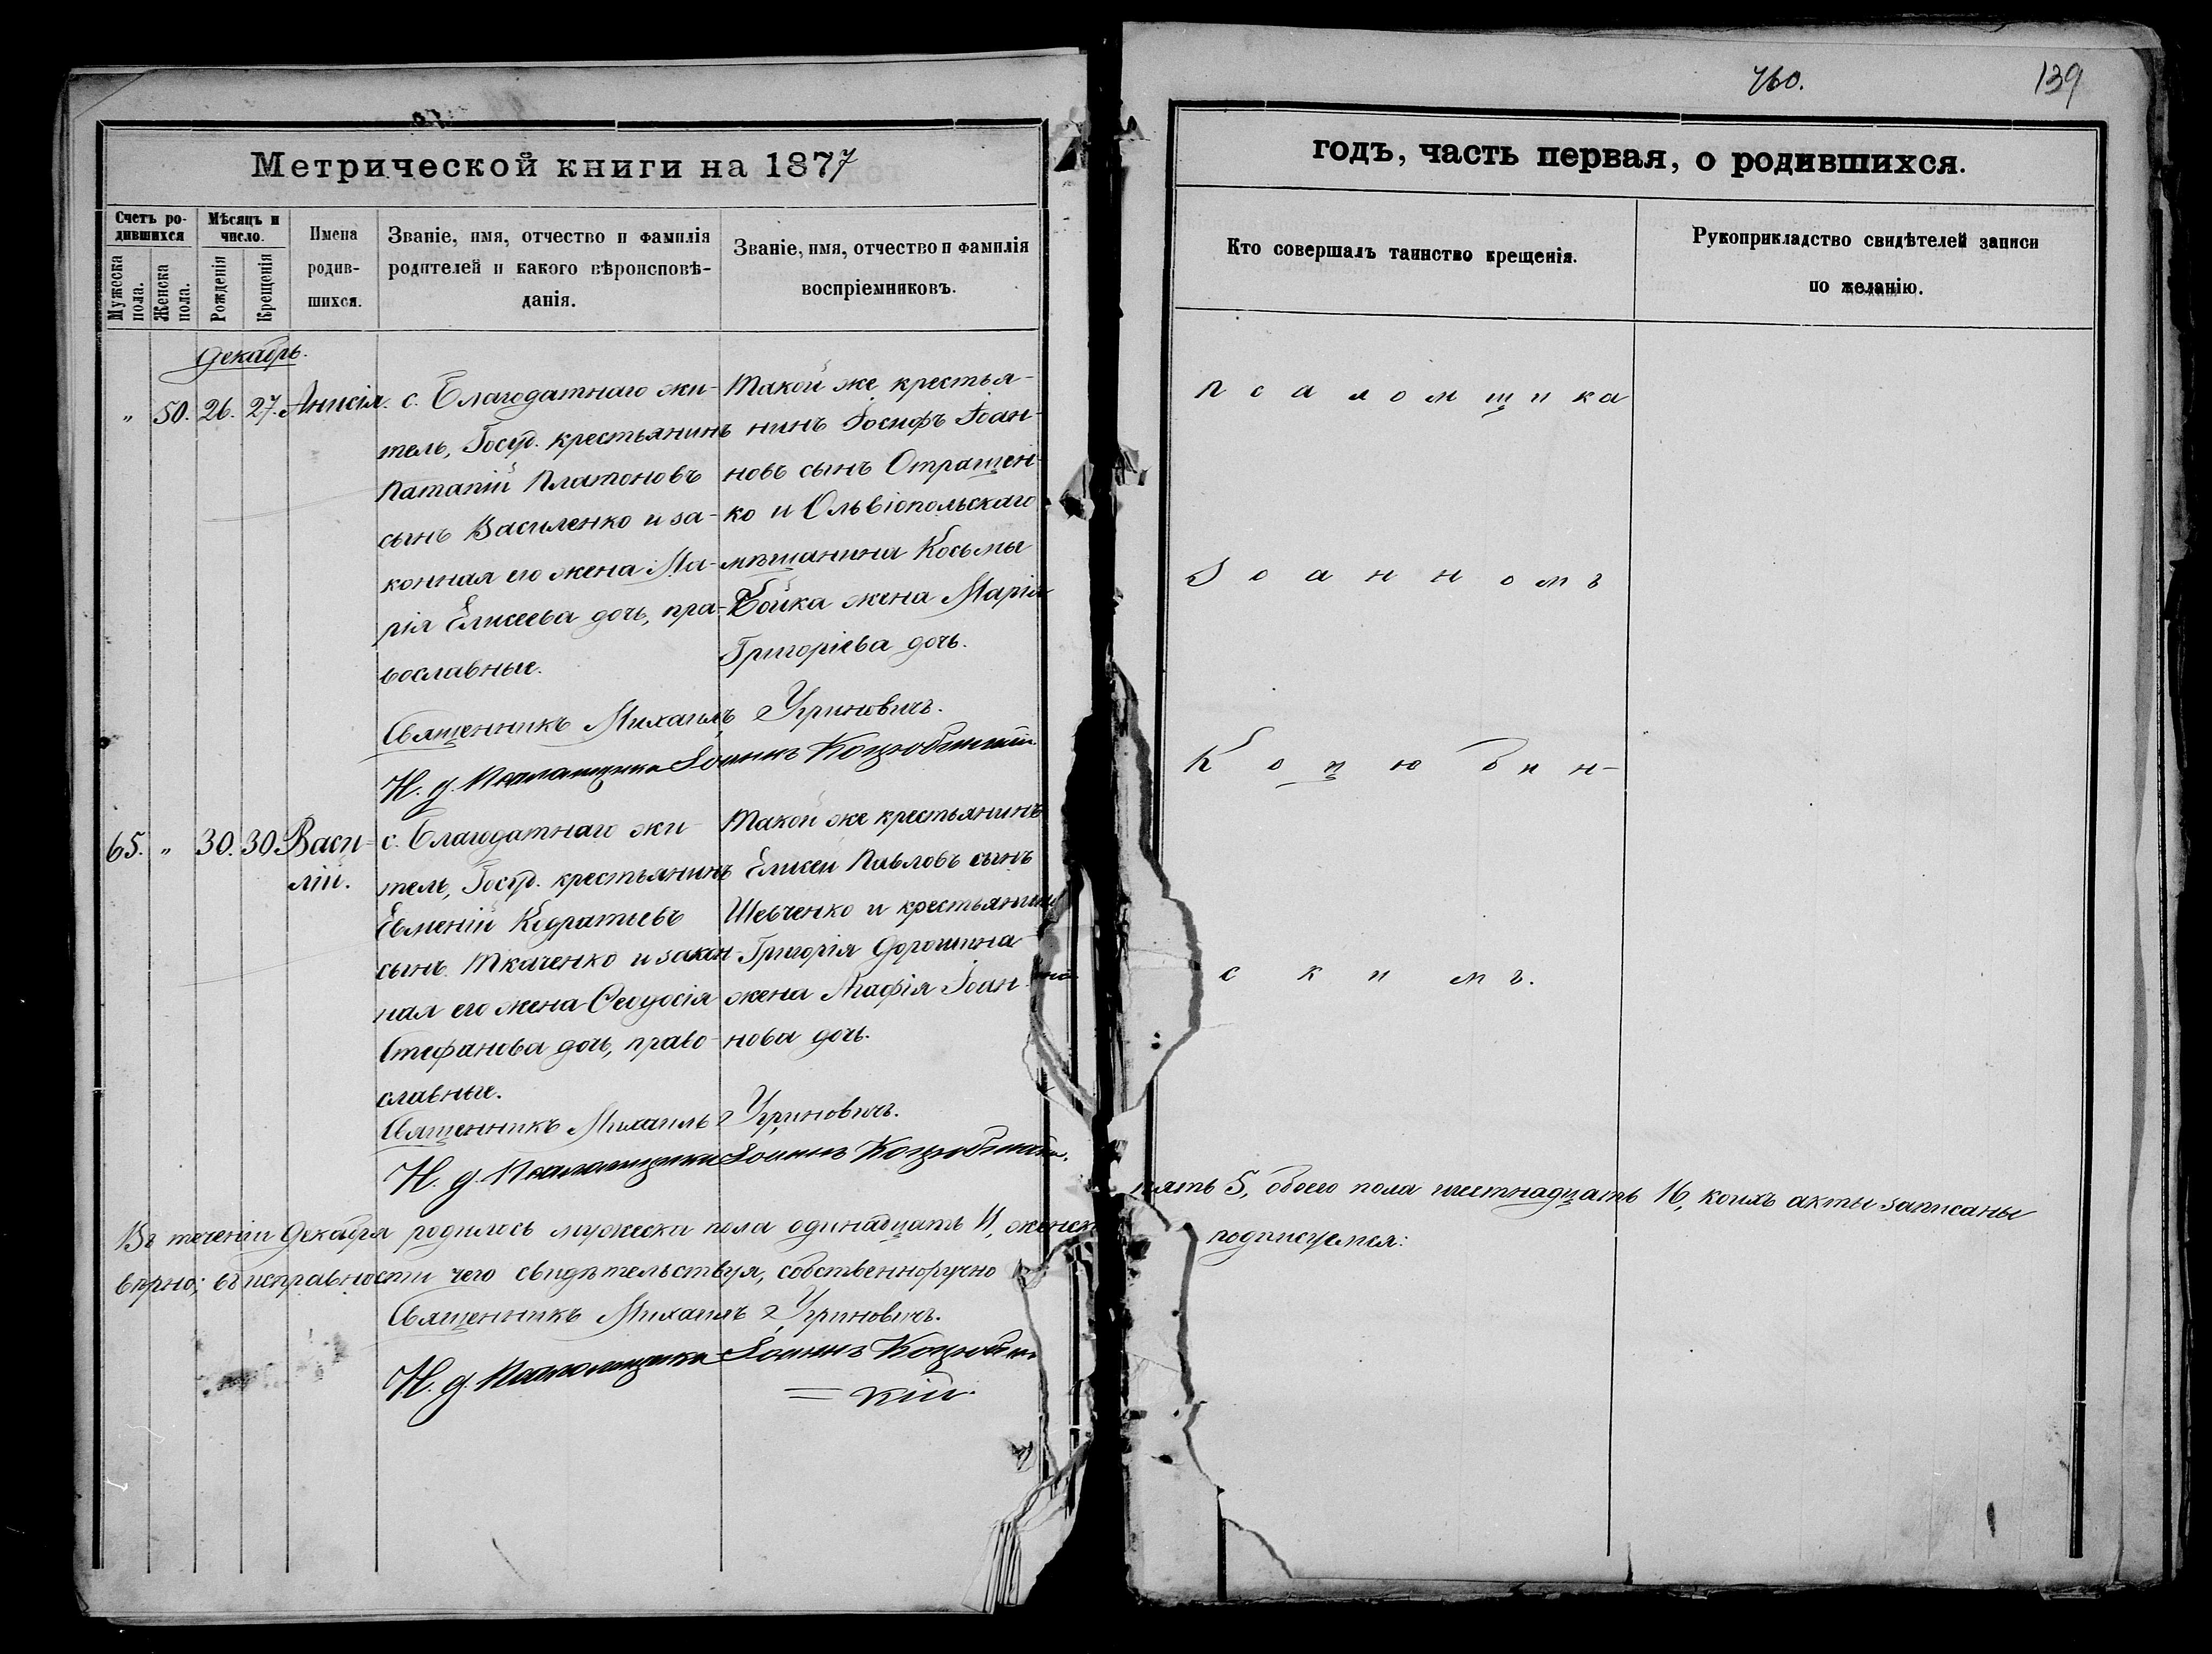 760.
139
Метрической книги на 1877
годъ, часть первая, о родившихся.
Счетъ ро-
дившихся
Мѣсяцъ и
число.
Мужеска
пола.
Женска
пола.
Рожденія
Крещенія
Имена
родив-
шихся.
Званіе, имя, отчество и фамилія
родителей и какого вѣроисповѣ-
данія.
Званіе, имя, отчество и фамилія
воспріемниковъ.
Кто совершалъ таинство крещенія.
Рукоприкладство свидѣтелей записи
по желанію.
Декабрь.
„ 50. 26. 27. Анисія.
с. Благодатнаго жи-
тель, Госуд. крестьянинъ
Патапій Платоновъ
сынъ Василенко и за-
конная его жена Ма-
рія Елисеева дочь, пра-
вославные.
Такой же крестья-
нинъ Іосифъ Іоан-
новъ сынъ Отращен-
ко и Ольвіопольскаго
мѣщанина Косьмы
Бойка жена Марія
Григоріева дочь.
Священникъ Михаилъ Угриновичъ.
И. д. Псаломщика Іоаннъ Коцюбинскій.
65. „ 30. 30. Васи-
лій.
с. Благодатнаго жи-
тель, Госуд. крестьянинъ
Евменій Кодратьевъ
сынъ Ткаченко и закон-
ная его жена Феодосія
Стефанова дочь, право-
славные.
Такой же крестьянинъ
Елисей Павловъ сынъ
Шевченко и крестьянина
Григорія Дорошина
жена Агафія Іоан-
нова дочь.
Священникъ Михаилъ Угриновичъ.
И. д. Псаломщика Іоаннъ Коцюбинскій.
псаломщика
Іоанномъ
Коцюбин-
скимъ.
Въ теченіи Декабря родилось мужеска пола одинадцать 11, женска пять 5, обоего пола шестнадцать 16, коихъ акты записаны
вѣрно; въ исправности чего свидѣтельствуя, собственноручно подписуемся:
Священникъ Михаилъ Угриновичъ.
И. д. Псаломщика Іоаннъ Коцюбинс
= кій.